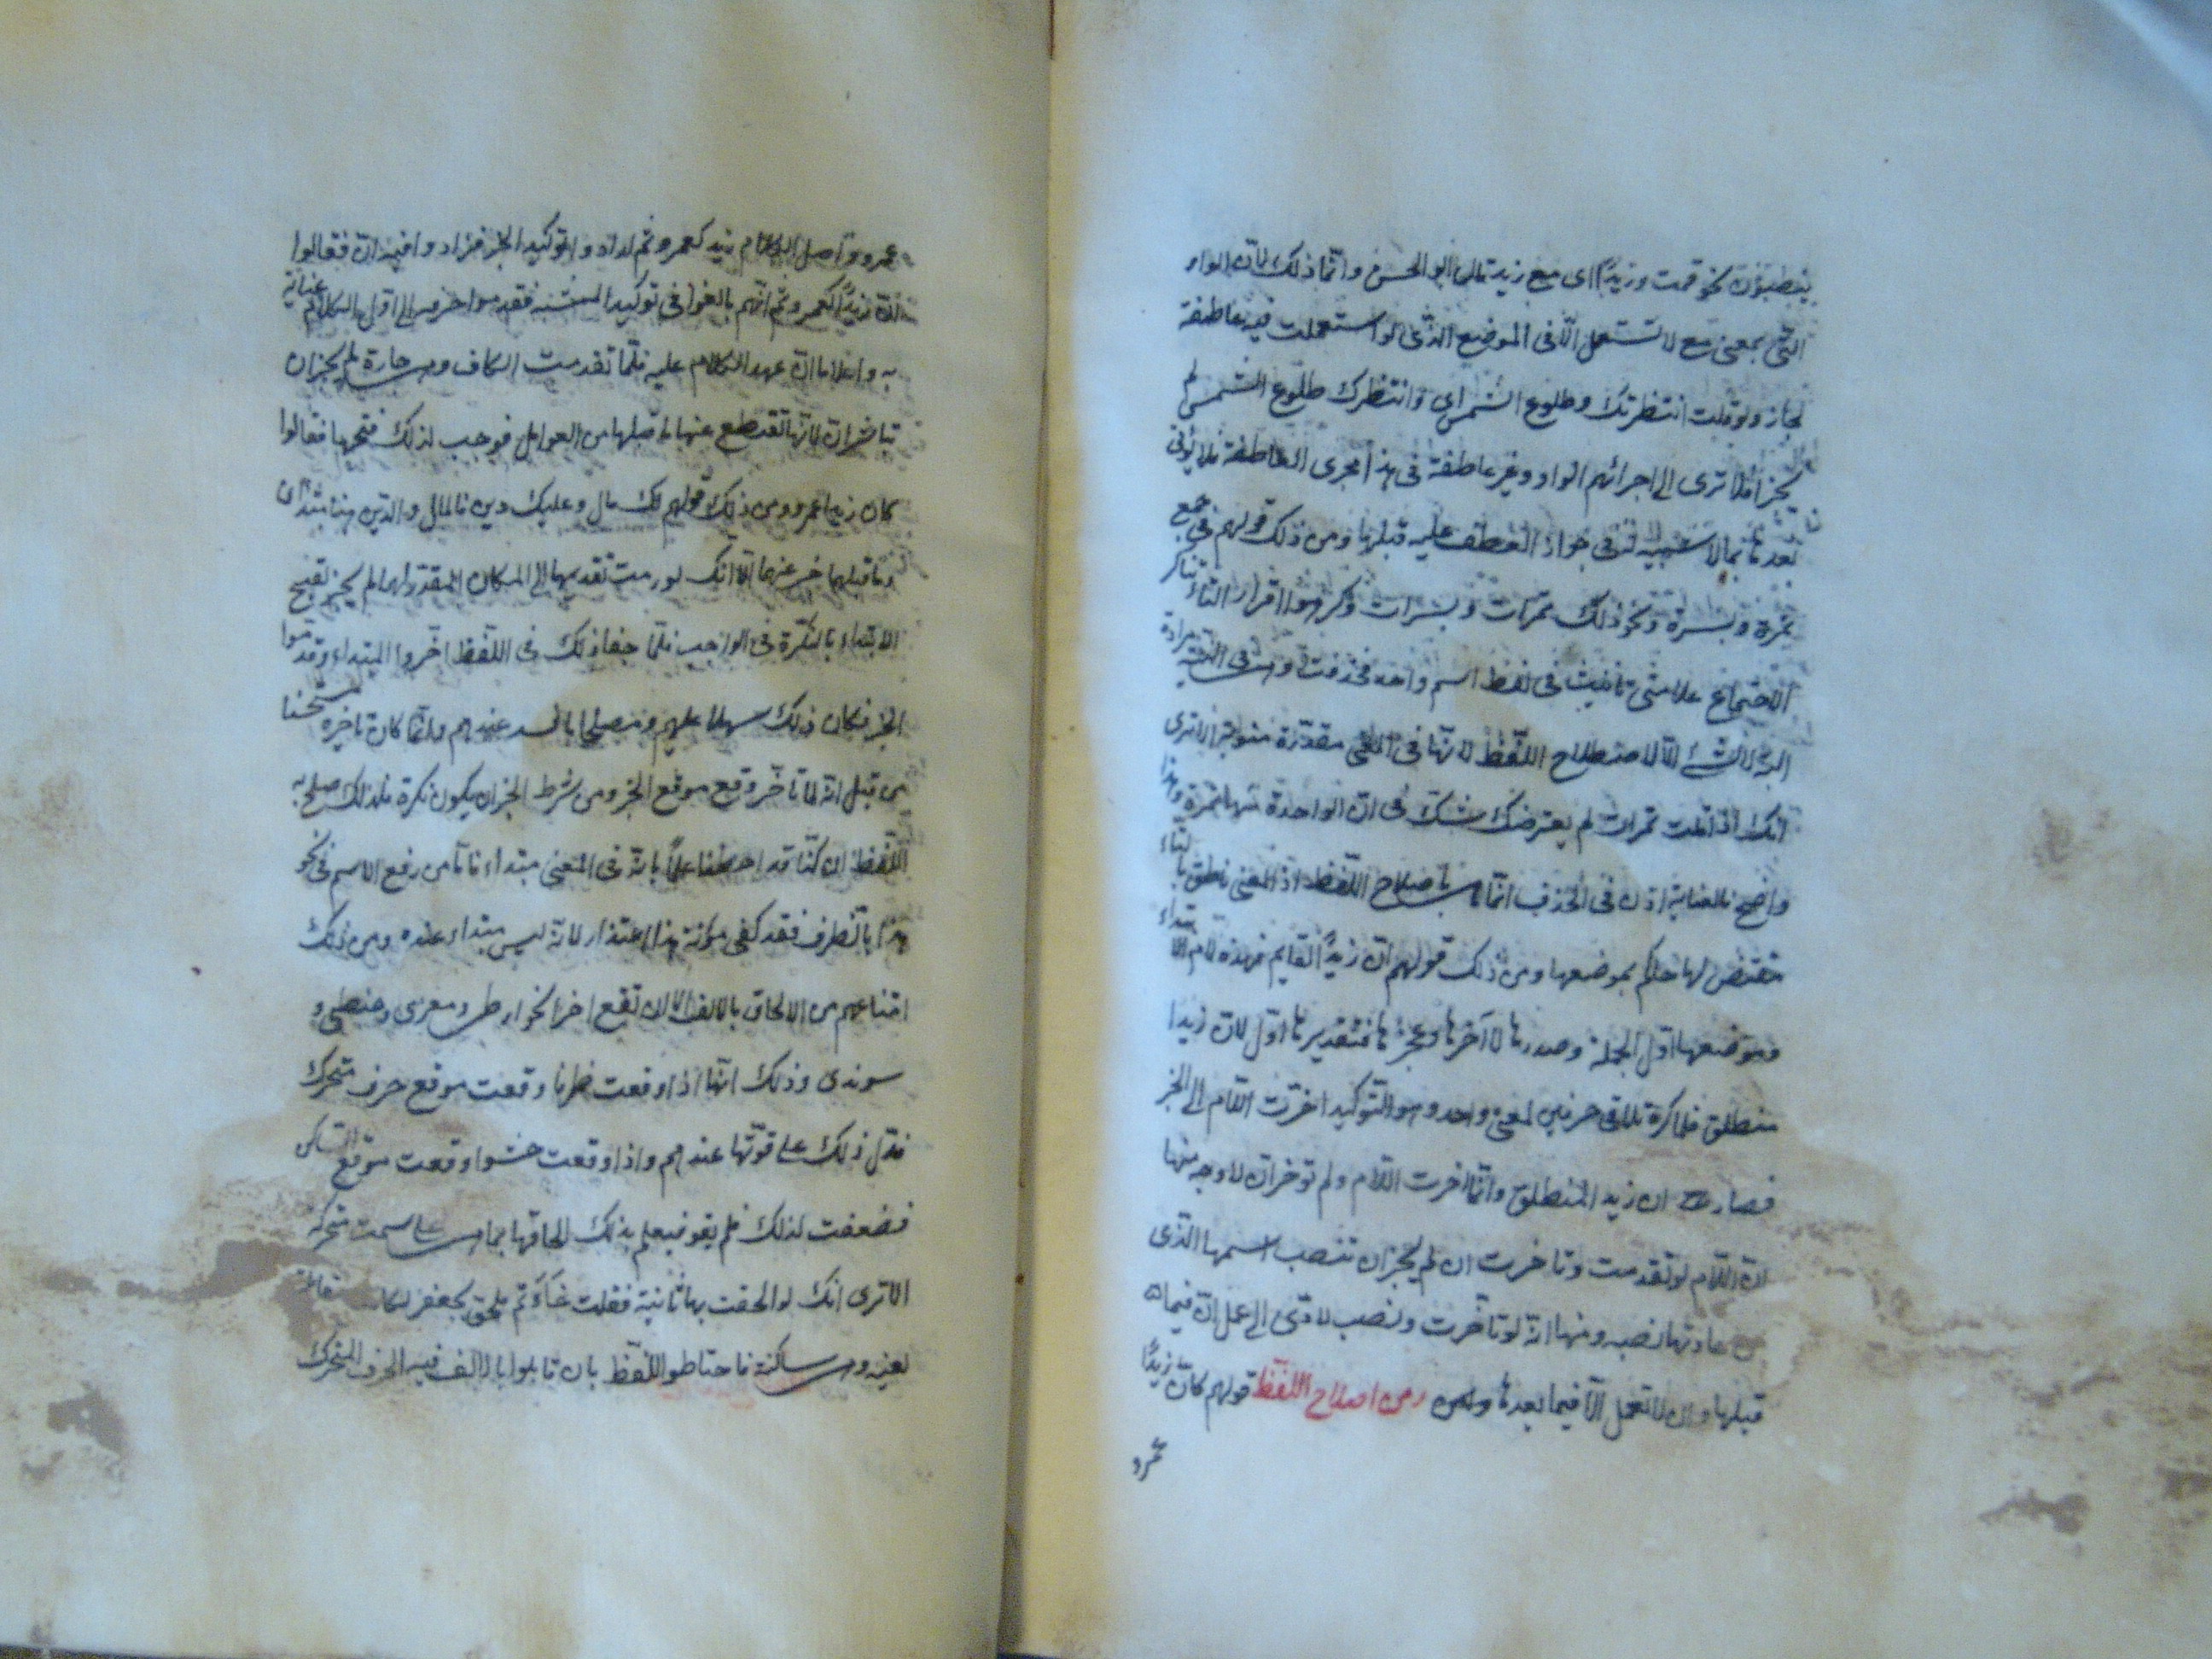 ينطبقون نحو قمت وزيدا اى مع زيد قال ابو الحسن وانما ذلك لان الواو
التى بمعنى مع لا تستعمل الا فى الموضع الذى لو استعملت فيه عاطفة
لجاز ولو قلت انتظرتك وطلوع الشمس اى وانتظرك طلوع الشمس لم
يجز افلا ترى الى اجرائهم الواو وغير عاطفة فى هذا مجرى العاطفة
بعدها بما لا شبيه له فى جواز العطف عليه قبلها ومن ذلك قولهم فى جمع
تمرة وبسرة ونحو ذلك تمرات وبسرات وكرهوا اقرار التاء تناكر
الاجتماع علامتى تانيث فى لفظ اسم واحد فحذفت وهى فى النية مرادة
لا لشئ الا لاصطلاح اللفظ لانها فى المعنى مقدرة منوية الا ترى
انك اذا قلت تمرات لم يعترضك شك فى ان الواحدة منها تمرة وهذا
واضح فالعناية اذن فى الحذف انما هى باصلاح اللفظ اذ المعنى ناطق بالتاء
مقتض لها حاكم بموضعها ومن ذلك قولهم ان زيدا لقايم فهذه لام الابتداء
وموضعها اول الجملة وصدرها لا آخرها وعجزها فتقديرها اول لان زيدا
منطلق فلما كره تلاقى حرفين لمعنى واحد وهو التوكيد اخرت اللام الى الخبر
فصار ان زيد المنطلق وانما اخرت اللام ولم توخر ان لاوجه منها
ان اللام لو تقدمت وتاخرت ان لم يجز ان تنصب اسمها الذى
من عادتها نصبه ومنها انه لو تاخرت ونصب لادى الى عمل ان فيما
قبلها وان لا تعمل الا فيما بعدها ومن اصلاح اللفظ قولهم كان زيدا
عمرو
عمرو واصل الكلام زيد كعمرو ثم ارادوا توكيد الخبر فزادوا فيه ان فقالوا
ان زيدا كعمرو ثم انهم بالغوا فى توكيد التشبيه فقدموا حرفه الى اول الكلام عناية
به واعلاما ان عهد الكلام عليه فلما تقدمت الكاف وهى جارة لم يجز ان
تباشر ان لانها تقطع عنها ما قبلها من العوامل فوجب لذلك فتحها فقالوا
كان زيدا عمرو ومن ذلك قولهم لك مال وعليك دين فالمال والدين هنا مبتدان
وما قبلهما خبر عنهما الا انك لو رمت تقديمها الى المكان المقدر لهما لم يجز لقبح
الابتداء بالنكرة فى الواجب فلما جفا ذلك فى اللفظ اخروا المبتداء وقدموا
الخبر فكان ذلك سهلا عليهم ومصلحا لما فسد عندهم وانما كان تاخيره مستحسنا
من قبل انه لما تاخر وقع موقع الخبر ومن شرط الخبر ان يكون نكرة فلذلك صلح به
اللفظ وان كنا قد احطنا علما بانه فى المعنى مبتداء فاما من رفع الاسم فى نحو
هذا بالظرف فقد كفى مؤنة هذا الاعتذار لانه ليس مبتداء عنده ومن ذلك
امتناعهم من الالحاق بالالف الا ان تقع اخرا نحو ارطى ومعزى وحنطى و
سوندى وذلك انها اذا وقعت طرفا وقعت موقع حرف متحرك
فدل ذلك على قوتها عندهم واذا وقعت حشوا وقعت موقع الساكن
فضعفت لذلك فلم يقو فيعلم بذلك الحاقها بما هى على سمت متحركه
الا ترى انك لو الحقت بها ثانية فقلت ثم ملحق بجعفر لكا
لعينه وهى ساكنة فاحتاطوا للفظ بان قابلوا بالالف فيه الحرف المتحرك